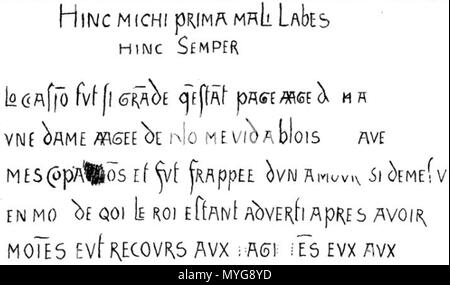 HINC MICHI PRIMA MALI LABES
HINC SEMPER
LOCCASIO FUT SI GRADE QESTAT PAGE AAGE D MA
VNE DAME AAGEE DE NO ME VID A BLOIS AVE
MES COPA OS ET FVT FRAPPEE DVN AMOVR SI DEME V
EN MO DE QOI LE ROI ESTANT ADVERTI APRES AVOIR
MOIES EVT RECOVRS AVX AGI ES EVX AVX
alamy
Image ID: MYG8YD
www.alamy.com